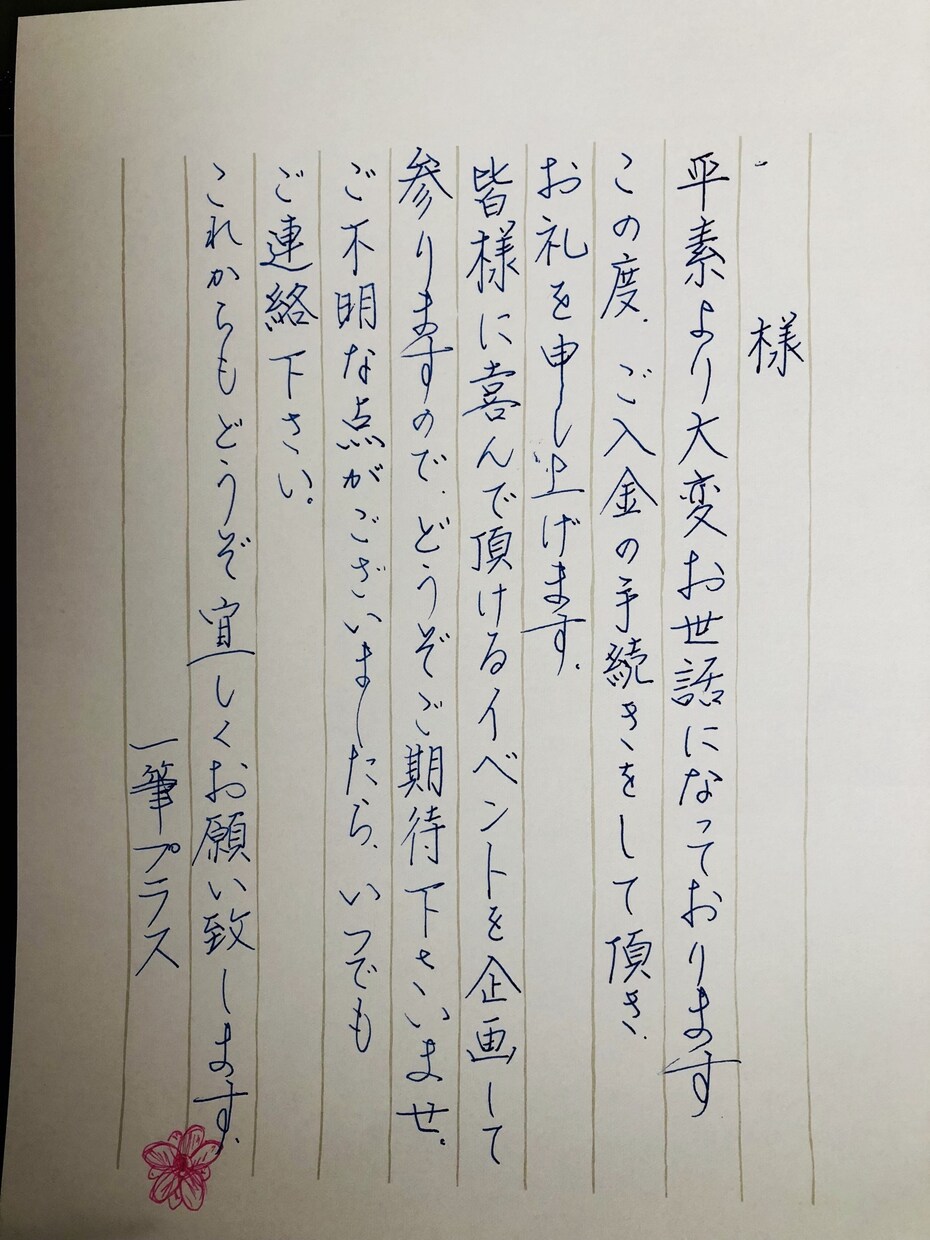 様
平素より大変お世話になっております
この度、ご入金の手続きをして頂き、
お礼を申し上げます。
皆様に喜んで頂けるイベントを企画して
参りますので、どうぞご期待下さいませ。
ご不明な点がございましたら、いつでも
ご連絡下さい。
これからもどうぞ宜しくお願い致します。
一筆プラス